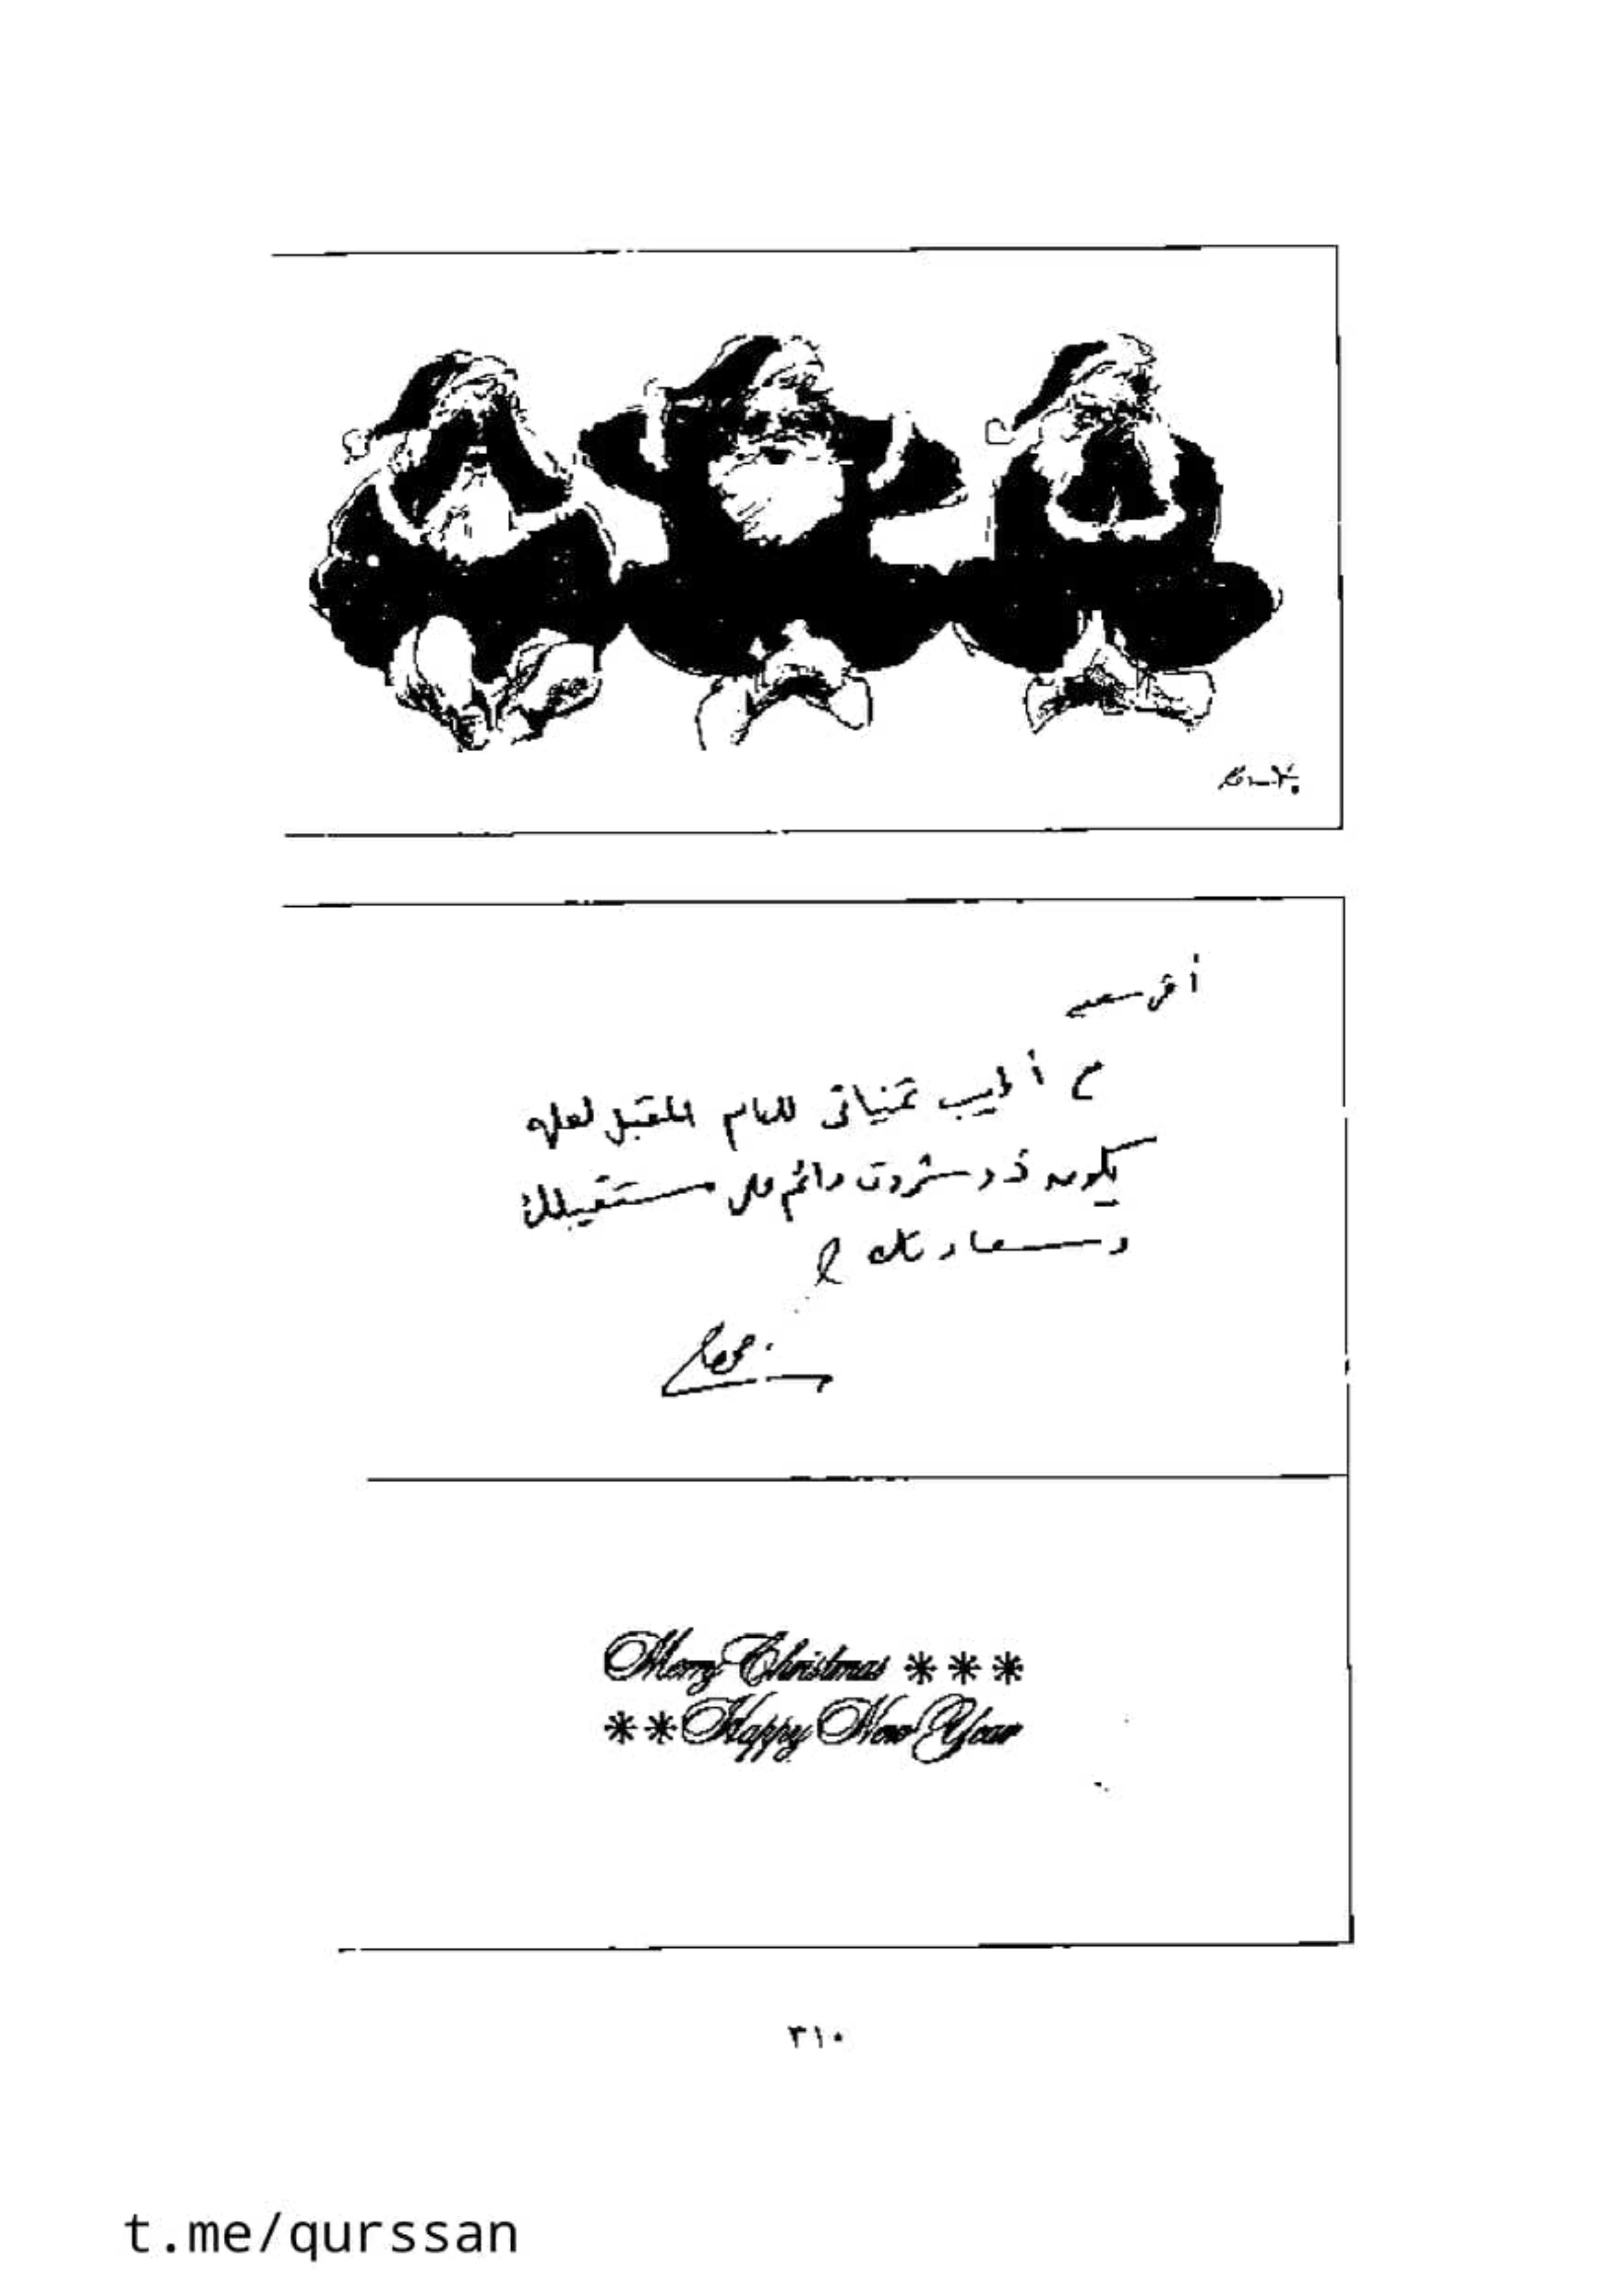 أخي سمير
مع أطيب تمنياتي للعام المقبل لعله
يكون ذو مردود دائم على مستقبلك
وسعادتك
Merry Christmas ***
**Happy New Year
٣١٠
t.me/qurssan